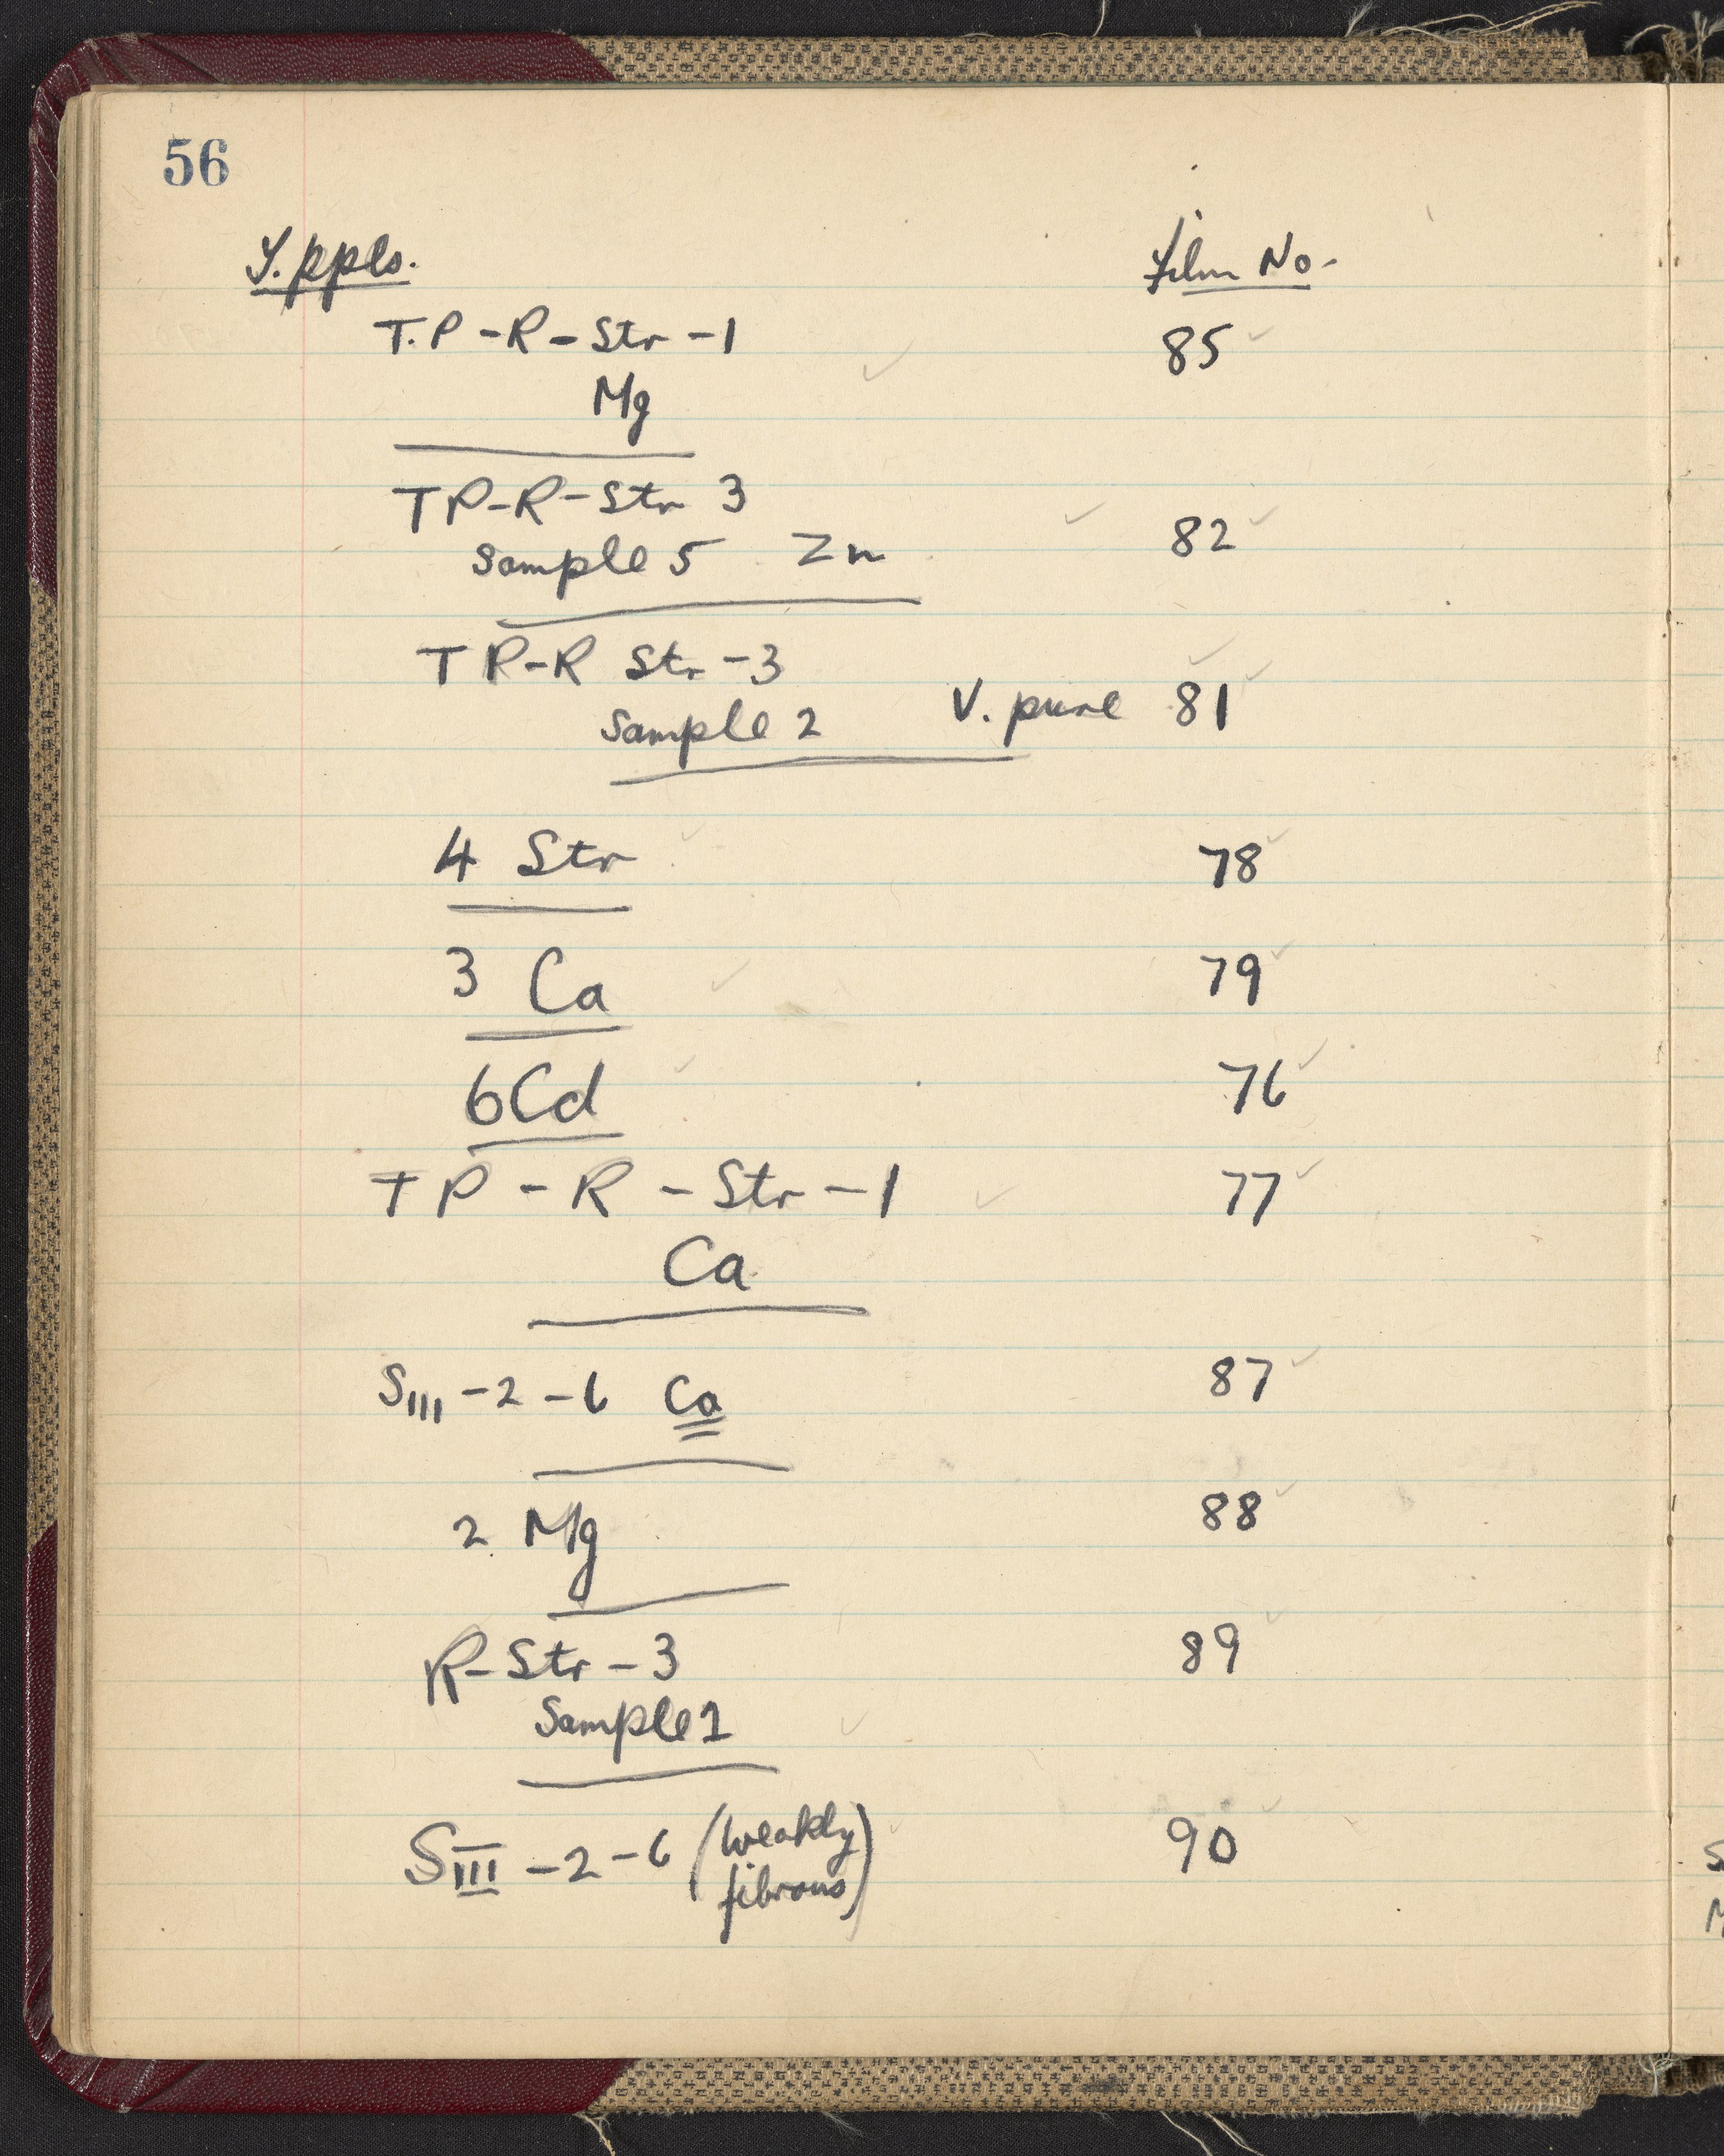 56
Y. ppls.
Film No.
T.P - R - Str - 1 85
Mg
TP-R-Str 3
Sample 5 Zn 82
TP-R Str -3
Sample 2 V. pure 81
4 Str 78
3 Ca 79
6 Cd 76
TP - R - Str - 1 77
Ca
SIII - 2 - 6 Ca 87
2 Mg 88
R-Str-3 89
Sample 1
SIII - 2 - 6 (weakly 90
fibrous)